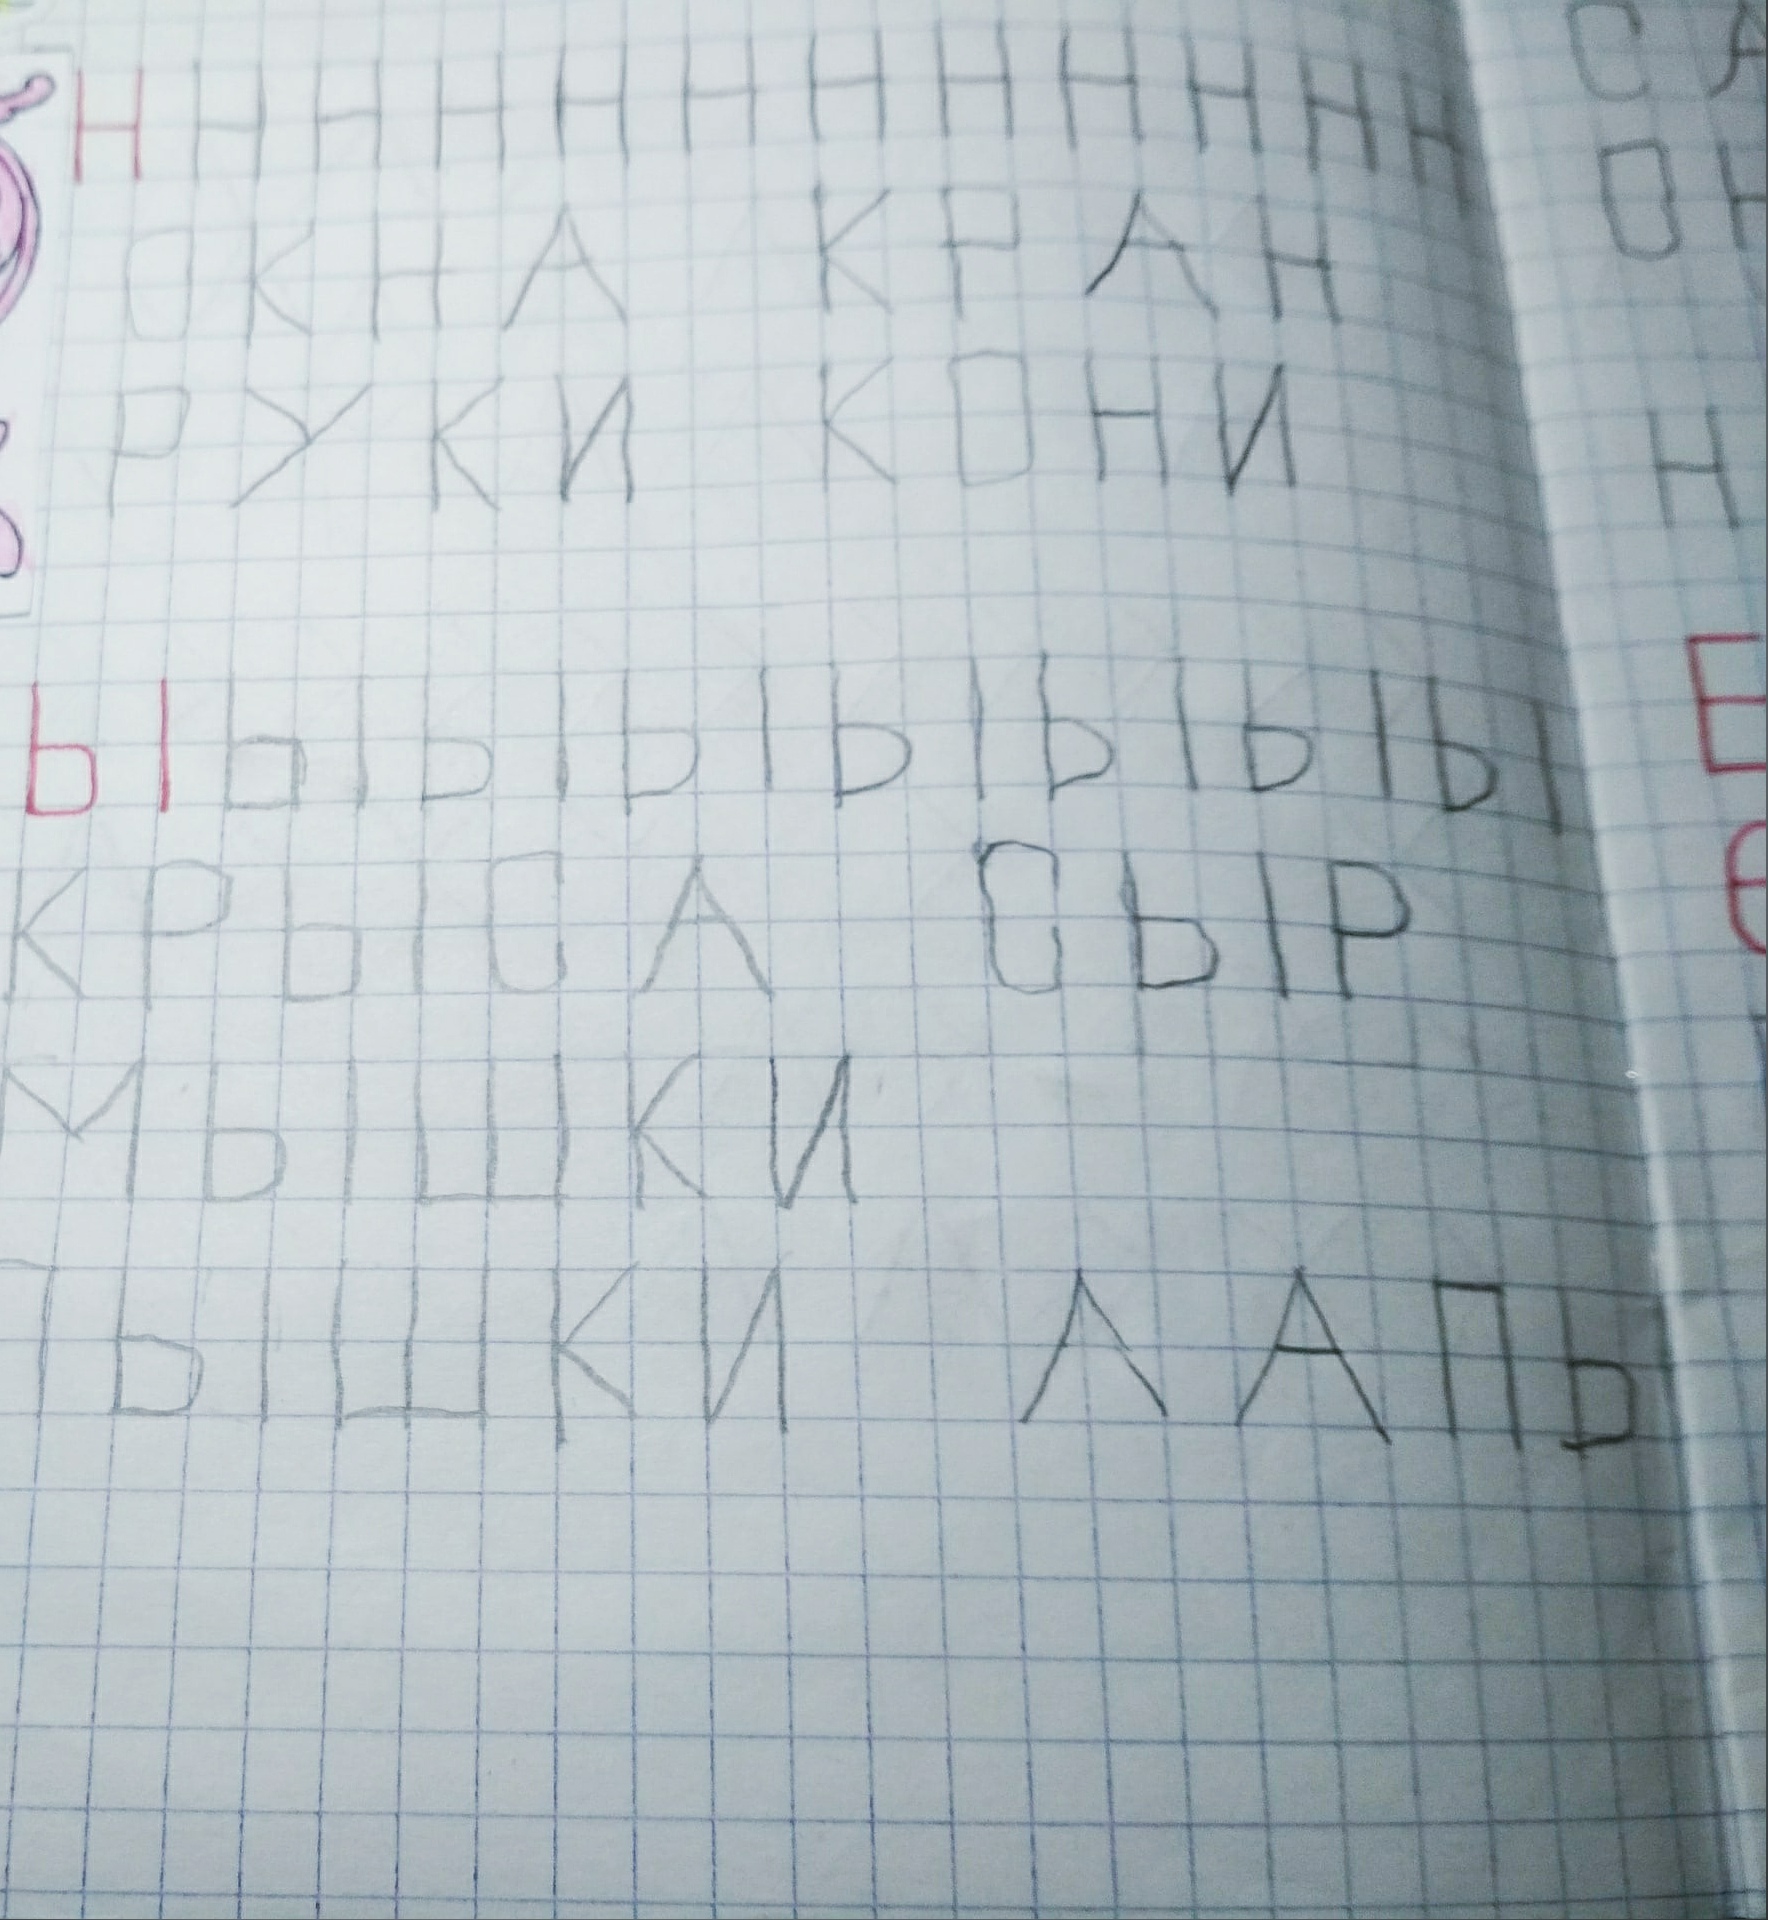 Н Н Н Н Н Н Н Н Н Н Н Н
ОКНА КРАН
РУКИ КОНИ
Ы Ы Ы Ы Ы Ы Ы Ы
КРЫСА СЫР
МЫШКИ
ПЫШКИ ЛАПЫ